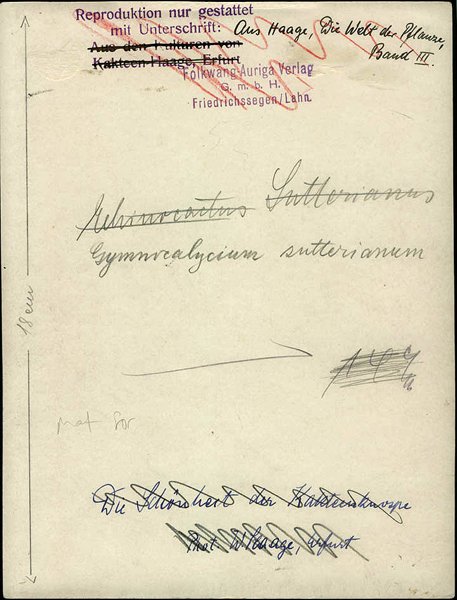 Reproduktion nur gestattet
mit Unterschrift: Aus Haage, Die Welt der Pflanze,
Band III.
Aus den Kulturen von
Kakteen-Haage, Erfurt
Folkwang-Auriga Verlag
G. m. b. H.
Friedrichssegen/Lahn.
Echinocactus Sutterianus
Gymnocalycium sutterianum
18 cm
Die Schönheit der Kakteenknospe
Phot. W. Haage, Erfurt